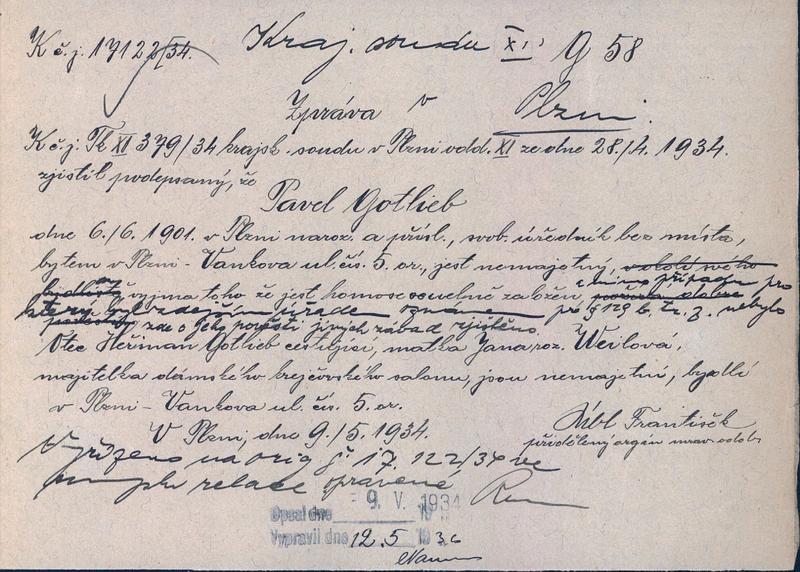 K č.j. 17122/34.
Kraj. soudu XI. g 58
Zpráva v Plzni.
K č.j. Tk XI 379/34 krajsk. soudu v Plzni odd. XI ze dne 28./4. 1934.
zjistil podepsaný, že
Pavel Gotlieb
dne 6./6. 1901. v Plzni naroz. a přísl., svob. úředník bez místa,
bytem v Plzni - Vankova ul. čís. 5. or., jest nemajetný, v okolí svého
bydliště vyjma toho že jest homosexuelně založen, a mimo případu pro
který byl zdejším úřadem oznámen pro § 129 b. tr. z. nebylo
zde o jeho pověsti jiných závad zjištěno.
Otec Heřman Gotlieb cestující, matka Jana roz. Weilová,
majitelka dámského krejčovského salonu, jsou nemajetní, bydlí
v Plzni - Vankova ul. čís. 5. or.
V Plzni, dne 9./5. 1934.
František
přidělený orgán mrav. odděl.
Vyřízeno na orig č. 17.122/34 ve
smyslu relace opravené
Opsal dne 9. V. 1934
Vypravil dne 12.5 19